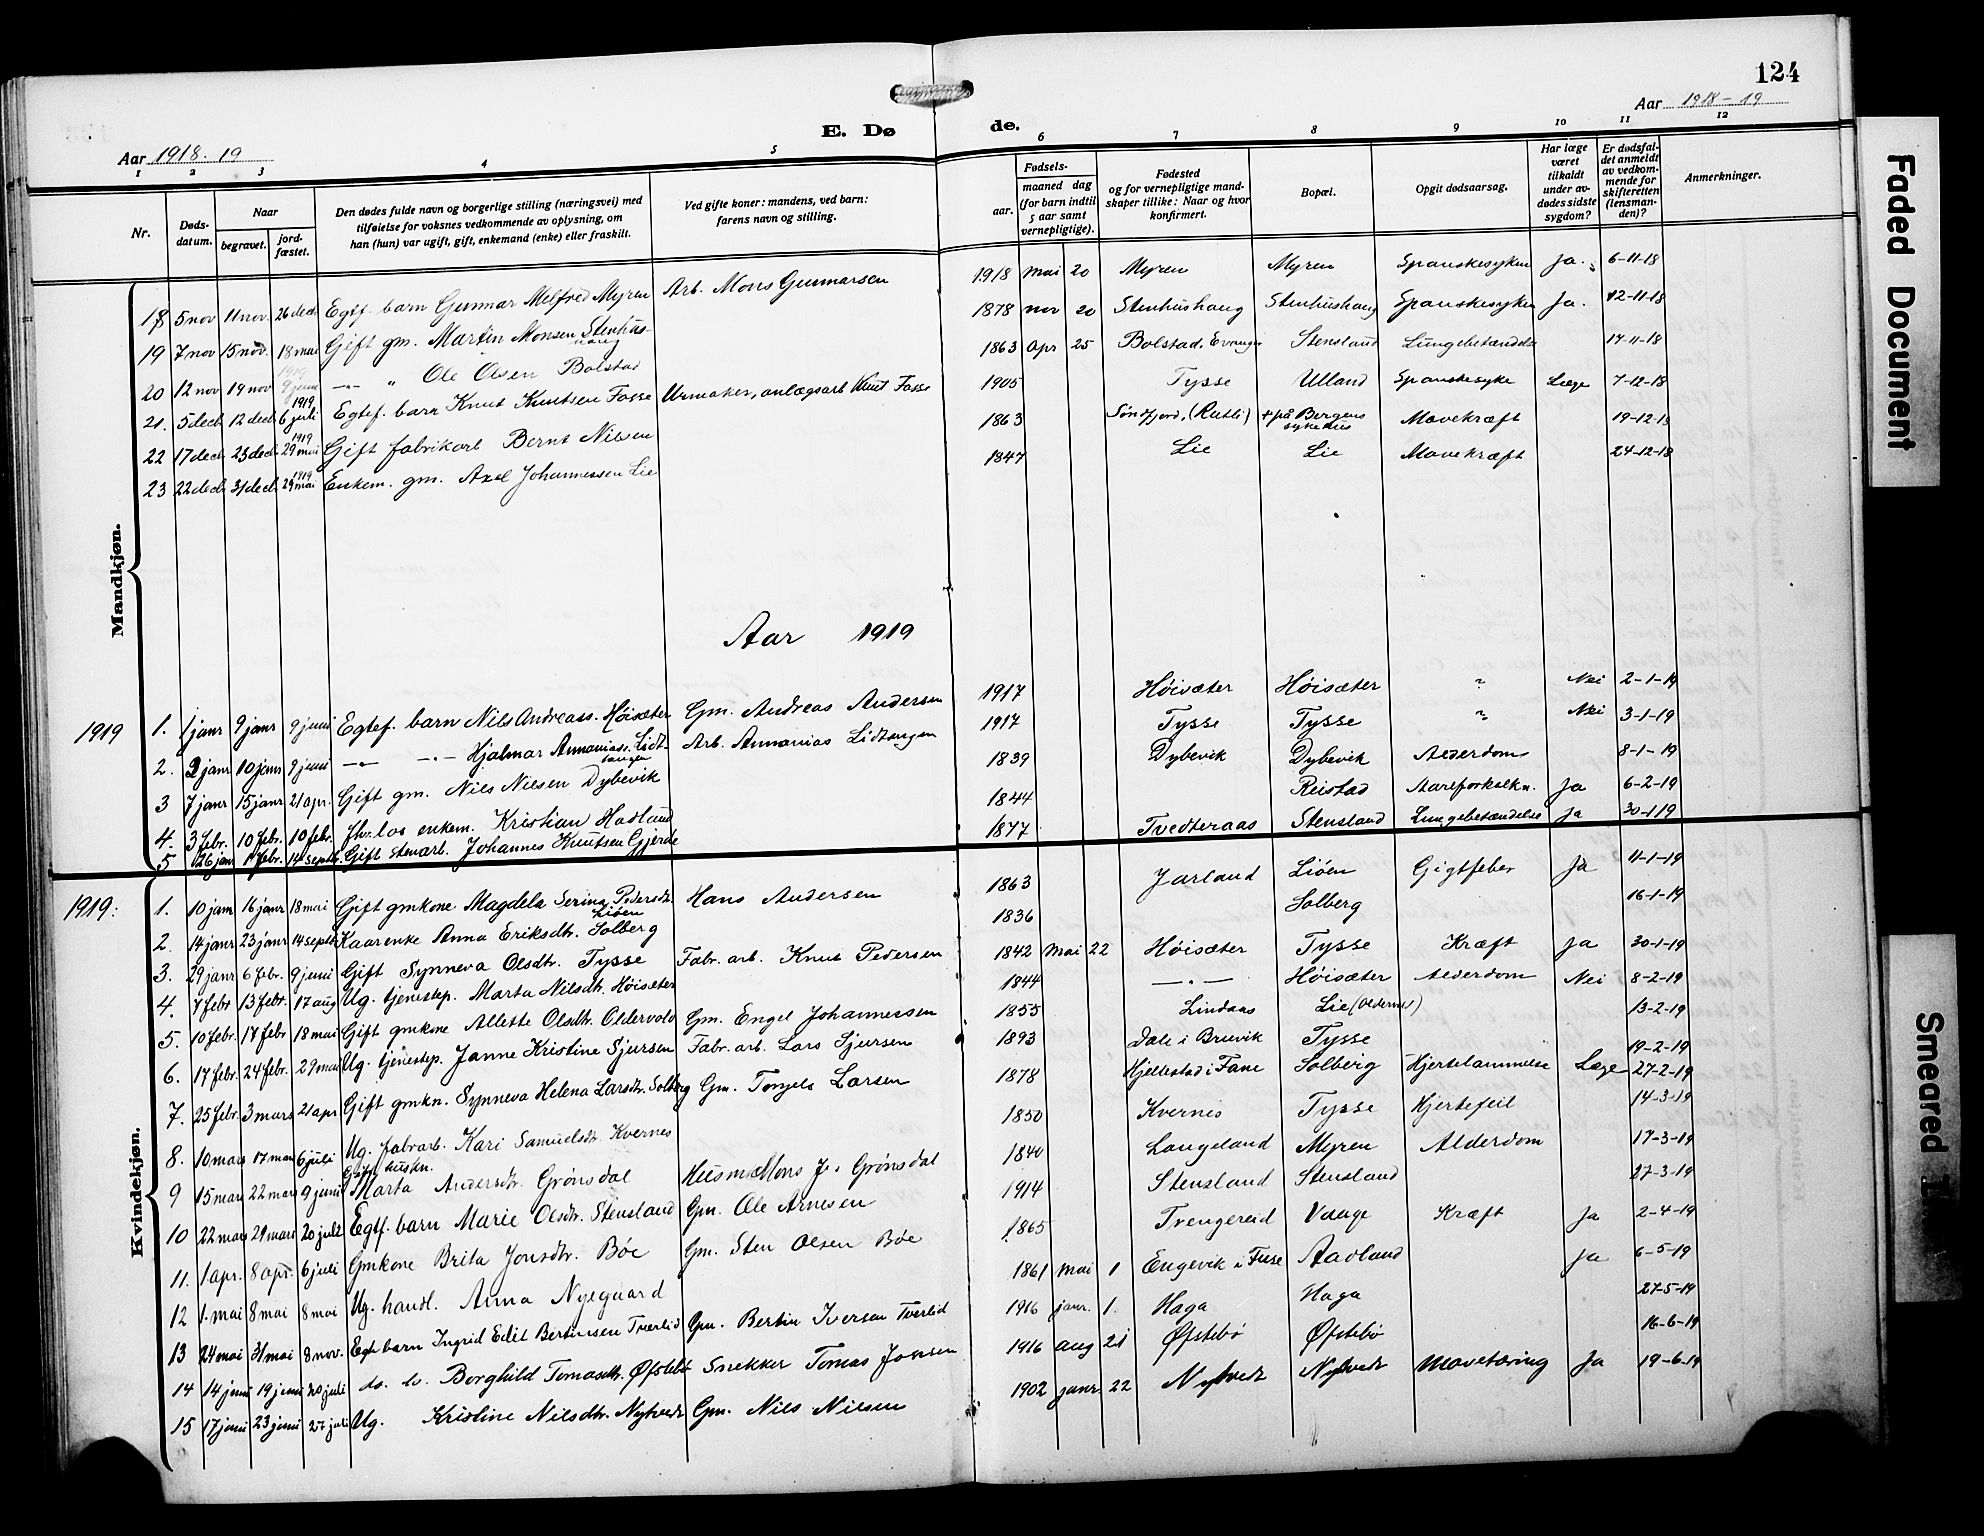 124
Aar 1918-19
E. Døde.
Aar 1918-19
1 2 3 4 5 6 7 8 9 10 11 12
Nr.
Døds-
datum.
Naar
begravet.
jord-
fæstet.
Den dødes fulde navn og borgerlige stilling (næringsvei) med
tilføielse for voksnes vedkommende av oplysning, om
han (hun) var ugift, gift, enkemand (enke) eller fraskilt.
Ved gifte koner: mandens, ved barn:
farens navn og stilling.
Fødsels-
aar.
maaned dag
(for barn indtil
5 aar samt
vernepligtige).
Fødested
og for vernepligtige mand-
skaper tillike: Naar og hvor
konfirmert.
Bopæl.
Opgit dødsaarsag.
Har læge
været
tilkaldt
under av-
dødes sidste
sygdom?
Er dødsfal-
det anmeldt
av vedkom-
mende for
skifteretten
(lensman-
den)?
Anmerkninger.
Mandkjøn.
18 5 nov 11 nov. 26 dec Egtf. barn Gunnar Melfred Myren Arb. Mons Gunnarsen 1918 mai 20 Myren Myren Spanskesyken Ja. 6-11-18
19 7 nov 15 nov. 18 mai Gift gm. Martin Monsen Stenhus-
haug 1878 nov 20 Stenhushaug Stenhushaug Spanskesyken Ja. 12-11-18
20 12 nov 19 nov 1919 9 juni —"— " Ole Olsen Bolstad 1863 apr 25 Bolstad, Evanger Stensland Lungebetændels 14-11-18
21. 5 dec 12 dec 1919 6 juli Egtef. barn Knut Knutsen Fosse Urmaker, anlægsarb Knut Fosse 1905 Tysse Ulland Spanskesyke Læge 7-12-18
22 17 dec 23 dec 1919 29 mai Gift fabrikarb Bernt Nilsen 1863 Søndfjord, (Rutli) + på Bergens
sykehus Mavekræft 19-12-18
23 22 dec 31 dec 1919 29 mai Enkem. gm. Axel Johannessen Lie 1847 Lie Lie Mavekræft 24-12-18
Aar 1919
1919 1. 1 janr 9 janr 9 juni Egtef. barn Nils Andreass. Høisæter Gm. Andreas Andersen 1917 Høisæter Høisæter ? Nei 2-1-19
2. 2 janr 10 janr 9 juni —"— —"— Hjalmar Annanias. Lidt-
langen Arb. Annanias Lidtangen 1917 Tysse Tysse ? Nei 3-1-19
3 7 janr 15 janr 21 apr. Gift gm. Nils Nilsen Dybevik 1839 Dybevik Dybevik Alderdom 8-1-19
4. 3 febr. 10 febr. 10 febr. fhv. los enkem. Kristian Hadland 1844 Reistad Aareforkalkn. Ja 6-2-19
5 26 jan 1 febr. 14 septb. Gift stenarb. Johannes Knutsen Gjerde 1877 Tvedteraas Stensland Lungebetændelse Ja 30-1 19
Kvindekjøn.
1919: 1. 10 jan 16 janr 18 mai Gift gmkone Magdela Serina Pedersdtr.
Liøen Hans Andersen 1863 Jarland Liøen Gigtfeber Ja 11-1-19
2. 14 janr 23 janr 14 septb Kaarenke Anna Eriksdtr. Solberg 1836 Solberg 16-1-19
3. 29 janr 6 febr. 9 juni Gift Synneva Olsdtr. Tysse Fabr. arb. Knut Pedersen 1842 Mai 22 Høisæter Tysse Kræft Ja 30-1-19
4. 7 febr 13 febr. 17 aug Ug. tjenestep. Marta Nilsdtr. Høisæter 1844 —"— Høisæter Alderdom Nei 8-2-19
5. 10 febr. 17 febr 18 mai Gift gmkone Allette Olsdtr. Oldervold Gm. Engel Johannessen 1855 Lindaas Lie 13-2-19
6. 17 febr. 24 febr. 29 mai Ug. tjenestep. Janne Kristine Sjursen Fabr. arb. Lars Sjursen 1893 Dale i Bruvik Tysse 19-2-19
7. 25 febr. 3 mars 21 apr Gift gmkn. Synneva Helena Larsdtr. Solberg Gm. Torgils Larsen 1878 Hjellestad i Fane Solberg Hjertelammelse Læge 27-2-19
8. 10 mars 17 mars 6 juli Ug. fabrarb. Kari Samuelsdtr. Kvernes 1850 Kvernes Tysse Hjertefeil 14-3-19
9 15 mars 22 mars 9 juni Gift huskn.
Marta Andersdtr. Grønsdal Husm. Mons J. Grønsdal 1840 Langeland Myren Alderdom 17-3-19
10 22 mars 29 mars 20 juli Egtf. barn Marie Olsdtr. Stensland Gm. Ole Arnesen 1914 Stensland Stensland 27-3-19
11. 1 apr. 8 apr. 6 juli Gmkone Brita Jonsdtr. Bøe Gm. Sten Olsen Bøe 1865 Trengereid Vaage Kræft Ja 2-4-19
12 1. mai 8 mai 8 mai Ug. handl. Anna Nygaard 1861 Mai 1 Engevik i Fuse Aadland Ja 6-5-19
13 24 mai 31 mai 8 nov. Egte barn Ingrid Edit Bertinsen Tverlid Gm. Bertin Iversen Tverlid 1916 janr. 1. Haga Haga 27-5-19
14 14 juni 19 juni 20 juli do. b. Borghild Tomasdtr. Øfstebø Snekker Tomas Jonsen 1916 aug 21 Øfstebø Øfstebø 16-6-19
15 17 juni 23 juni 27 juli Ug. Kristine Nilsdtr. Nytvedt Gm. Nils Nilsen 1902 janr. 22 Nytvedt Nytvedt Mavetæring Ja 19-6-19
Faded Document
Smeared